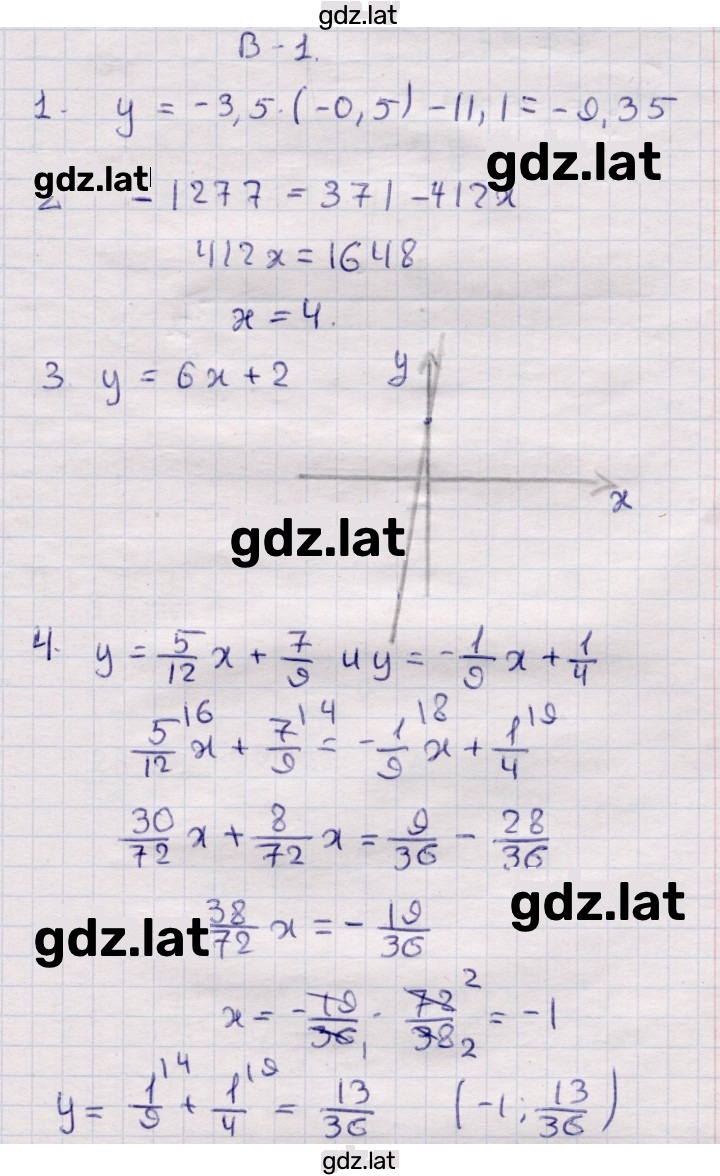 gdz.lat
В-1.
1. y = -3,5·(-0,5) -11,1 = -9,35
gdz.lat
gdz.lat
2 -1277 = 371 -412x
412x = 1648
x = 4.
3. y = 6x + 2
y
x
gdz.lat
4. y = 5/12 x + 7/9 и y = -1/9 x + 1/4
5/12 |6 x + 7/9 |4 = -1/9 |8 x + 1/4 |9
30/72 x + 8/72 x = 9/36 - 28/36
gdz.lat
gdz.lat
38/72 x = - 19/36
x = - 19/36 1 · 72/38 2 2 = -1
y = 1/9 |4 + 1/4 |9 = 13/36 (-1; 13/36)
gdz.lat